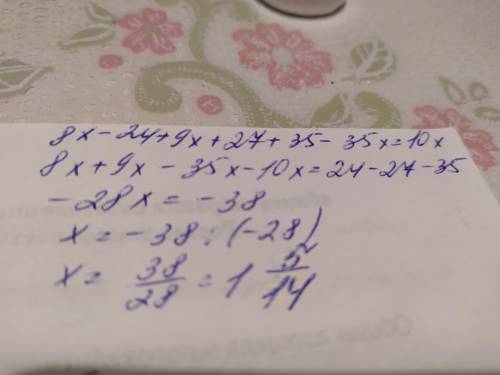 8x-24+9x+27+35-35x=10x
8x+9x-35x-10x=24-27-35
-28x=-38
x=-38:(-28)
x=38/28=1 5/14